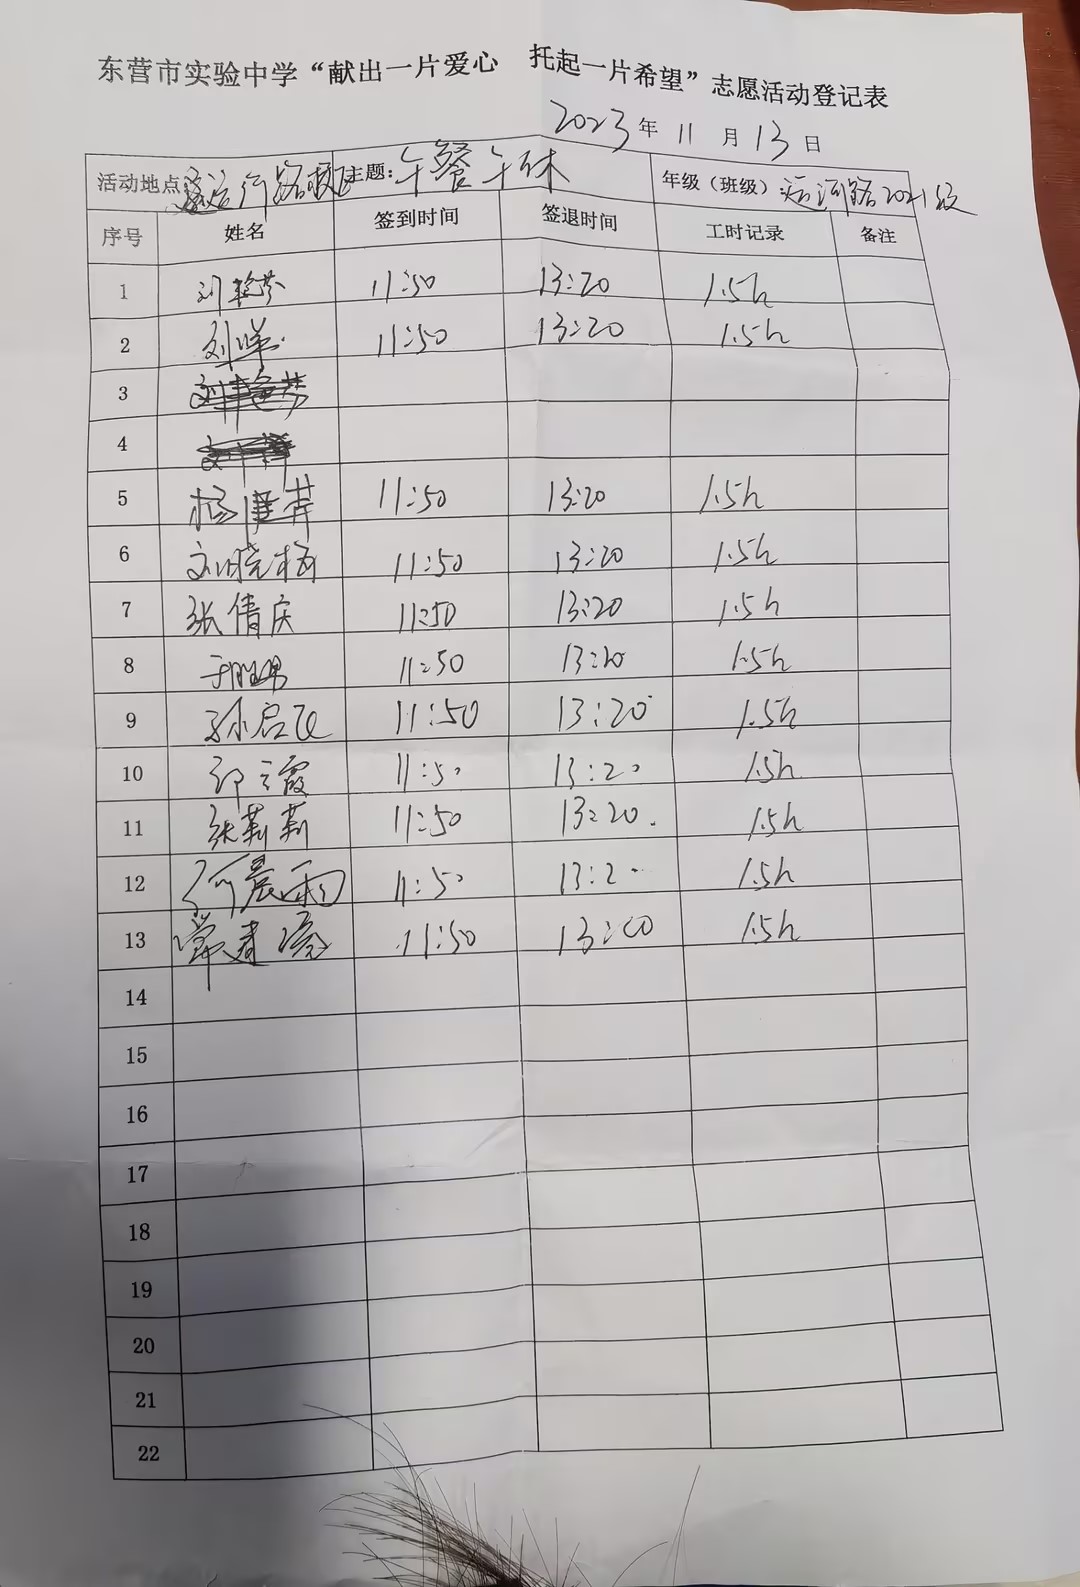 东营市实验中学“献出一片爱心 托起一片希望”志愿活动登记表
2023年11月13日
活动地点 路校区 主题:午餐午休 年级(班级) 运河路2021级
序号 姓名 签到时间 签退时间 工时记录 备注
1 刘艳芬 11:50 13:20 1.5h
2 刘 11:50 13:20 1.5h
3
4
5 杨 11:50 13:20 1.5h
6 刘晓梅 11:50 13:20 1.5h
7 张倩庆 11:50 13:20 1.5h
8 于胜男 11:50 13:20 1.5h
9 孙启飞 11:50 13:20 1.5h
10 霞 11:50 13:20 1.5h
11 张莉莉 11:50 13:20. 1.5h
12 晨雨 11:50 13:20 1.5h
13 常春 11:50 13:20 1.5h
14
15
16
17
18
19
20
21
22